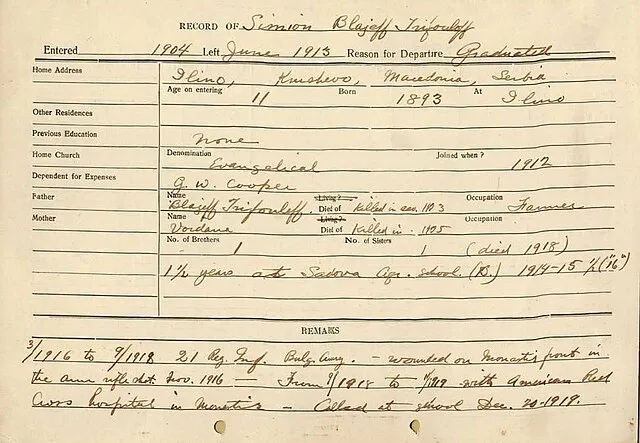 RECORD OF Simion Blajeff Trifouloff
Entered 1904 Left June 1913 Reason for Departure Graduated
Home Address Ilino, Krushevo, Macedonia, Serbia
Age on entering 11 Born 1893 At Ilino
Other Residences
Previous Education none
Home Church Denomination Evangelical Joined when? 1912
Dependent for Expenses G. W. Cooper
Father Name Blajeff Trifouloff Living? Died of Killed in 1903 Occupation Farmer
Mother Name Yordana Living? Died of Killed in 1905 Occupation
No. of Brothers 1 No. of Sisters 1 (died 1918)
1 1/2 years at Sadova Agr. school (B.) 1914-15 1/2 ("16")
REMARKS
3/1916 to 9/1918 21 Reg. Inf. Bulg. Army. - wounded on Monastir front in
the arm rifle shot. Nov. 1916 — From 9/1918 to 1/1919 with American Red
Cross hospital in Monastir - Called at school Dec. 20-1919.